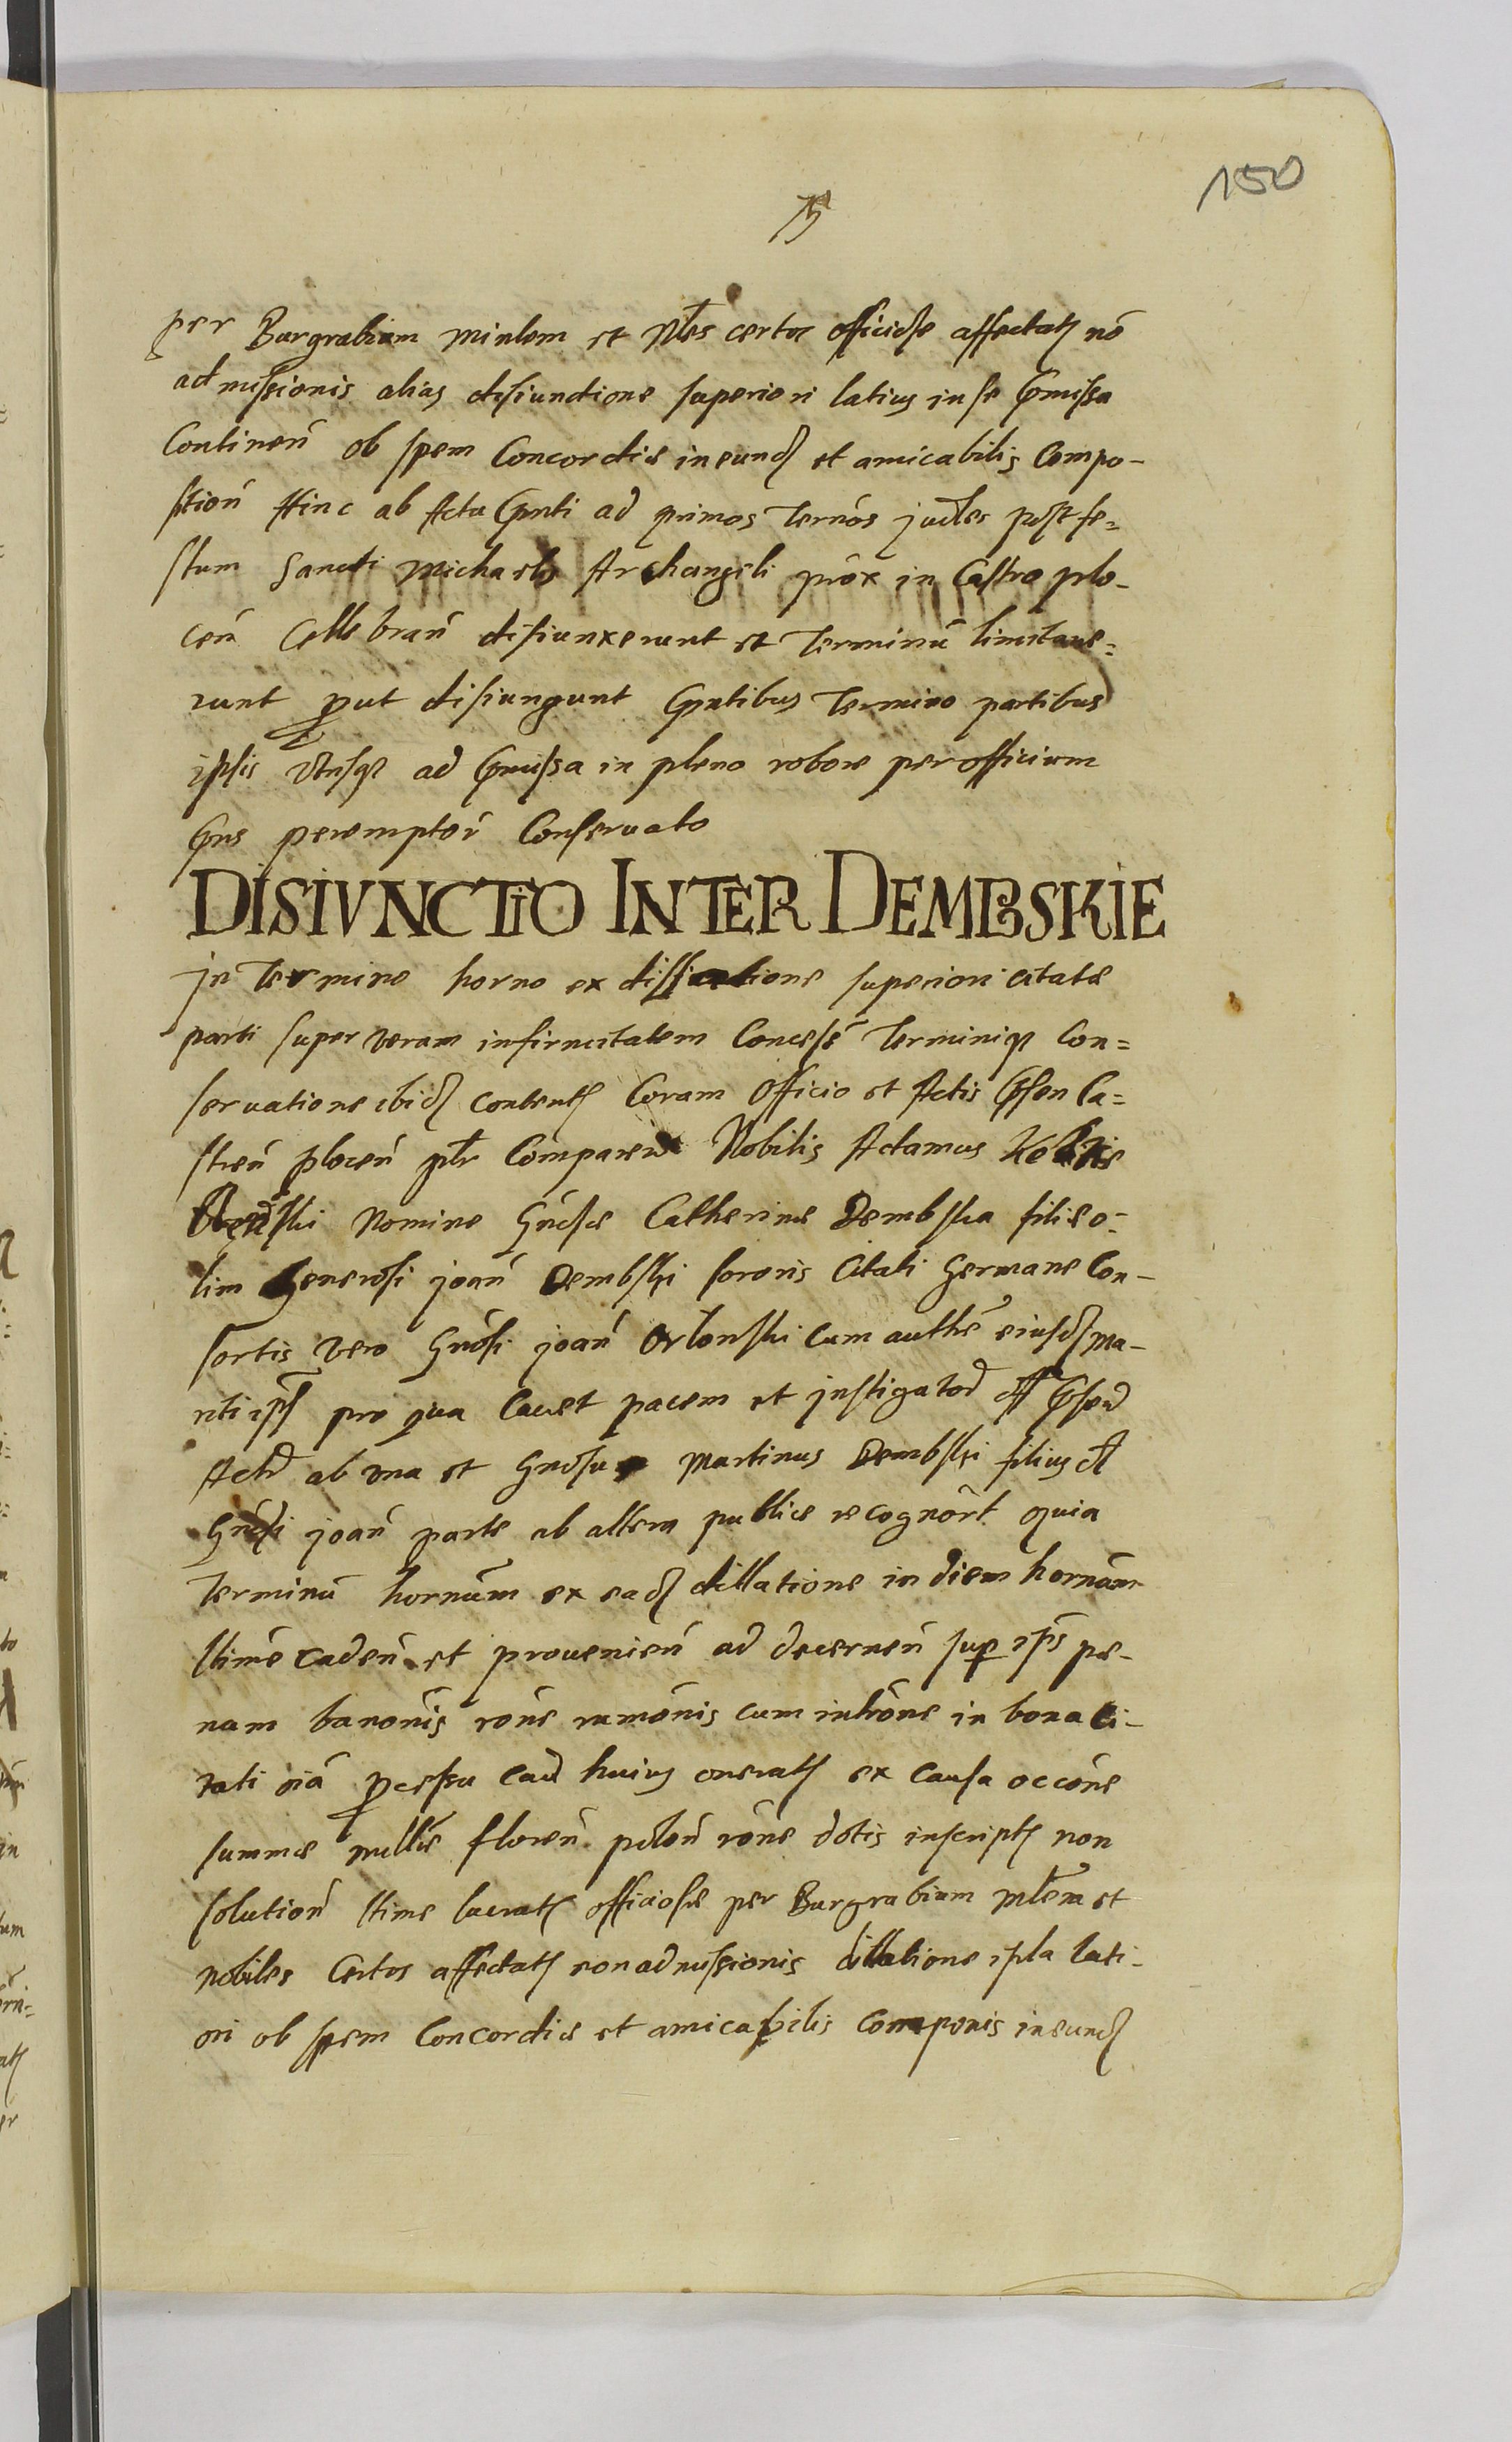 150
per Burgrabium Minlem et Nles certos officiose affectatȩ nō
admissionis alias disiunctione superiori latius in se p̄missa
Continen̄ ob spem Concordiæ ineundȩ et amicabilis Compo-
sition̄ Hinc ab Actu p̄nti ad primos Ternos judles post fe=
stum Sancti Michaelis Archangeli prox in Castro plo-
cen̄ Cellebran̄ disiunxerunt et Terminū limitave=
runt prout disiungunt p̄ntibus Termino partibus
ipsis utrisq ad p̄missa in pleno robore per officium
p̄ns peremptor̄ Conservato
DISIVNCTIO INTER DEMBSKIE
Jn Termino horno ex dissiunctione superiori citatæ
parti super veram infirmitatem Concesse Terminiq Con=
servatione ibidȩ contentȩ Coram Officio et Actis p̄sen Ca=
stren̄ plocen̄ plr Comparens Nobilis Adamus
Nomine Gnosæ Catherinæ Dembska filiæ o=
lim Generosi joan̄ Dembski sororis Citati Germane Con-
sortis vero Gnosi joan̄ Orlonski cum authe eiusdȩ Ma-
riti ipsȩ pro qua cavet pacem et jnstigator̄ off p̄sen̄
Actr̄ ab una et Gnosus Martinus Dembski filius dt
Gnosi joan̄ parte ab altera publice recognort quia
Terminū hornūm ex eadȩ dillatione in diem hornām
ltime caden̄ et provenien̄ ad decernen̄ sup ips pæ-
nam banonis rone rumonis cum intrône in bona ci-
tati oiā processu caus̄ huius oneratȩ ex causa occône
summæ mille floren̄ polon̄ rône dotis inscriptȩ non
solution̄ ltime lucratȩ officiose per Burgrabium Mlem et
Nobiles Certos affectatȩ non admissionis dillatione ipsa lati-
ori ob spem Concordiæ et amicabilis componis ineundȩ